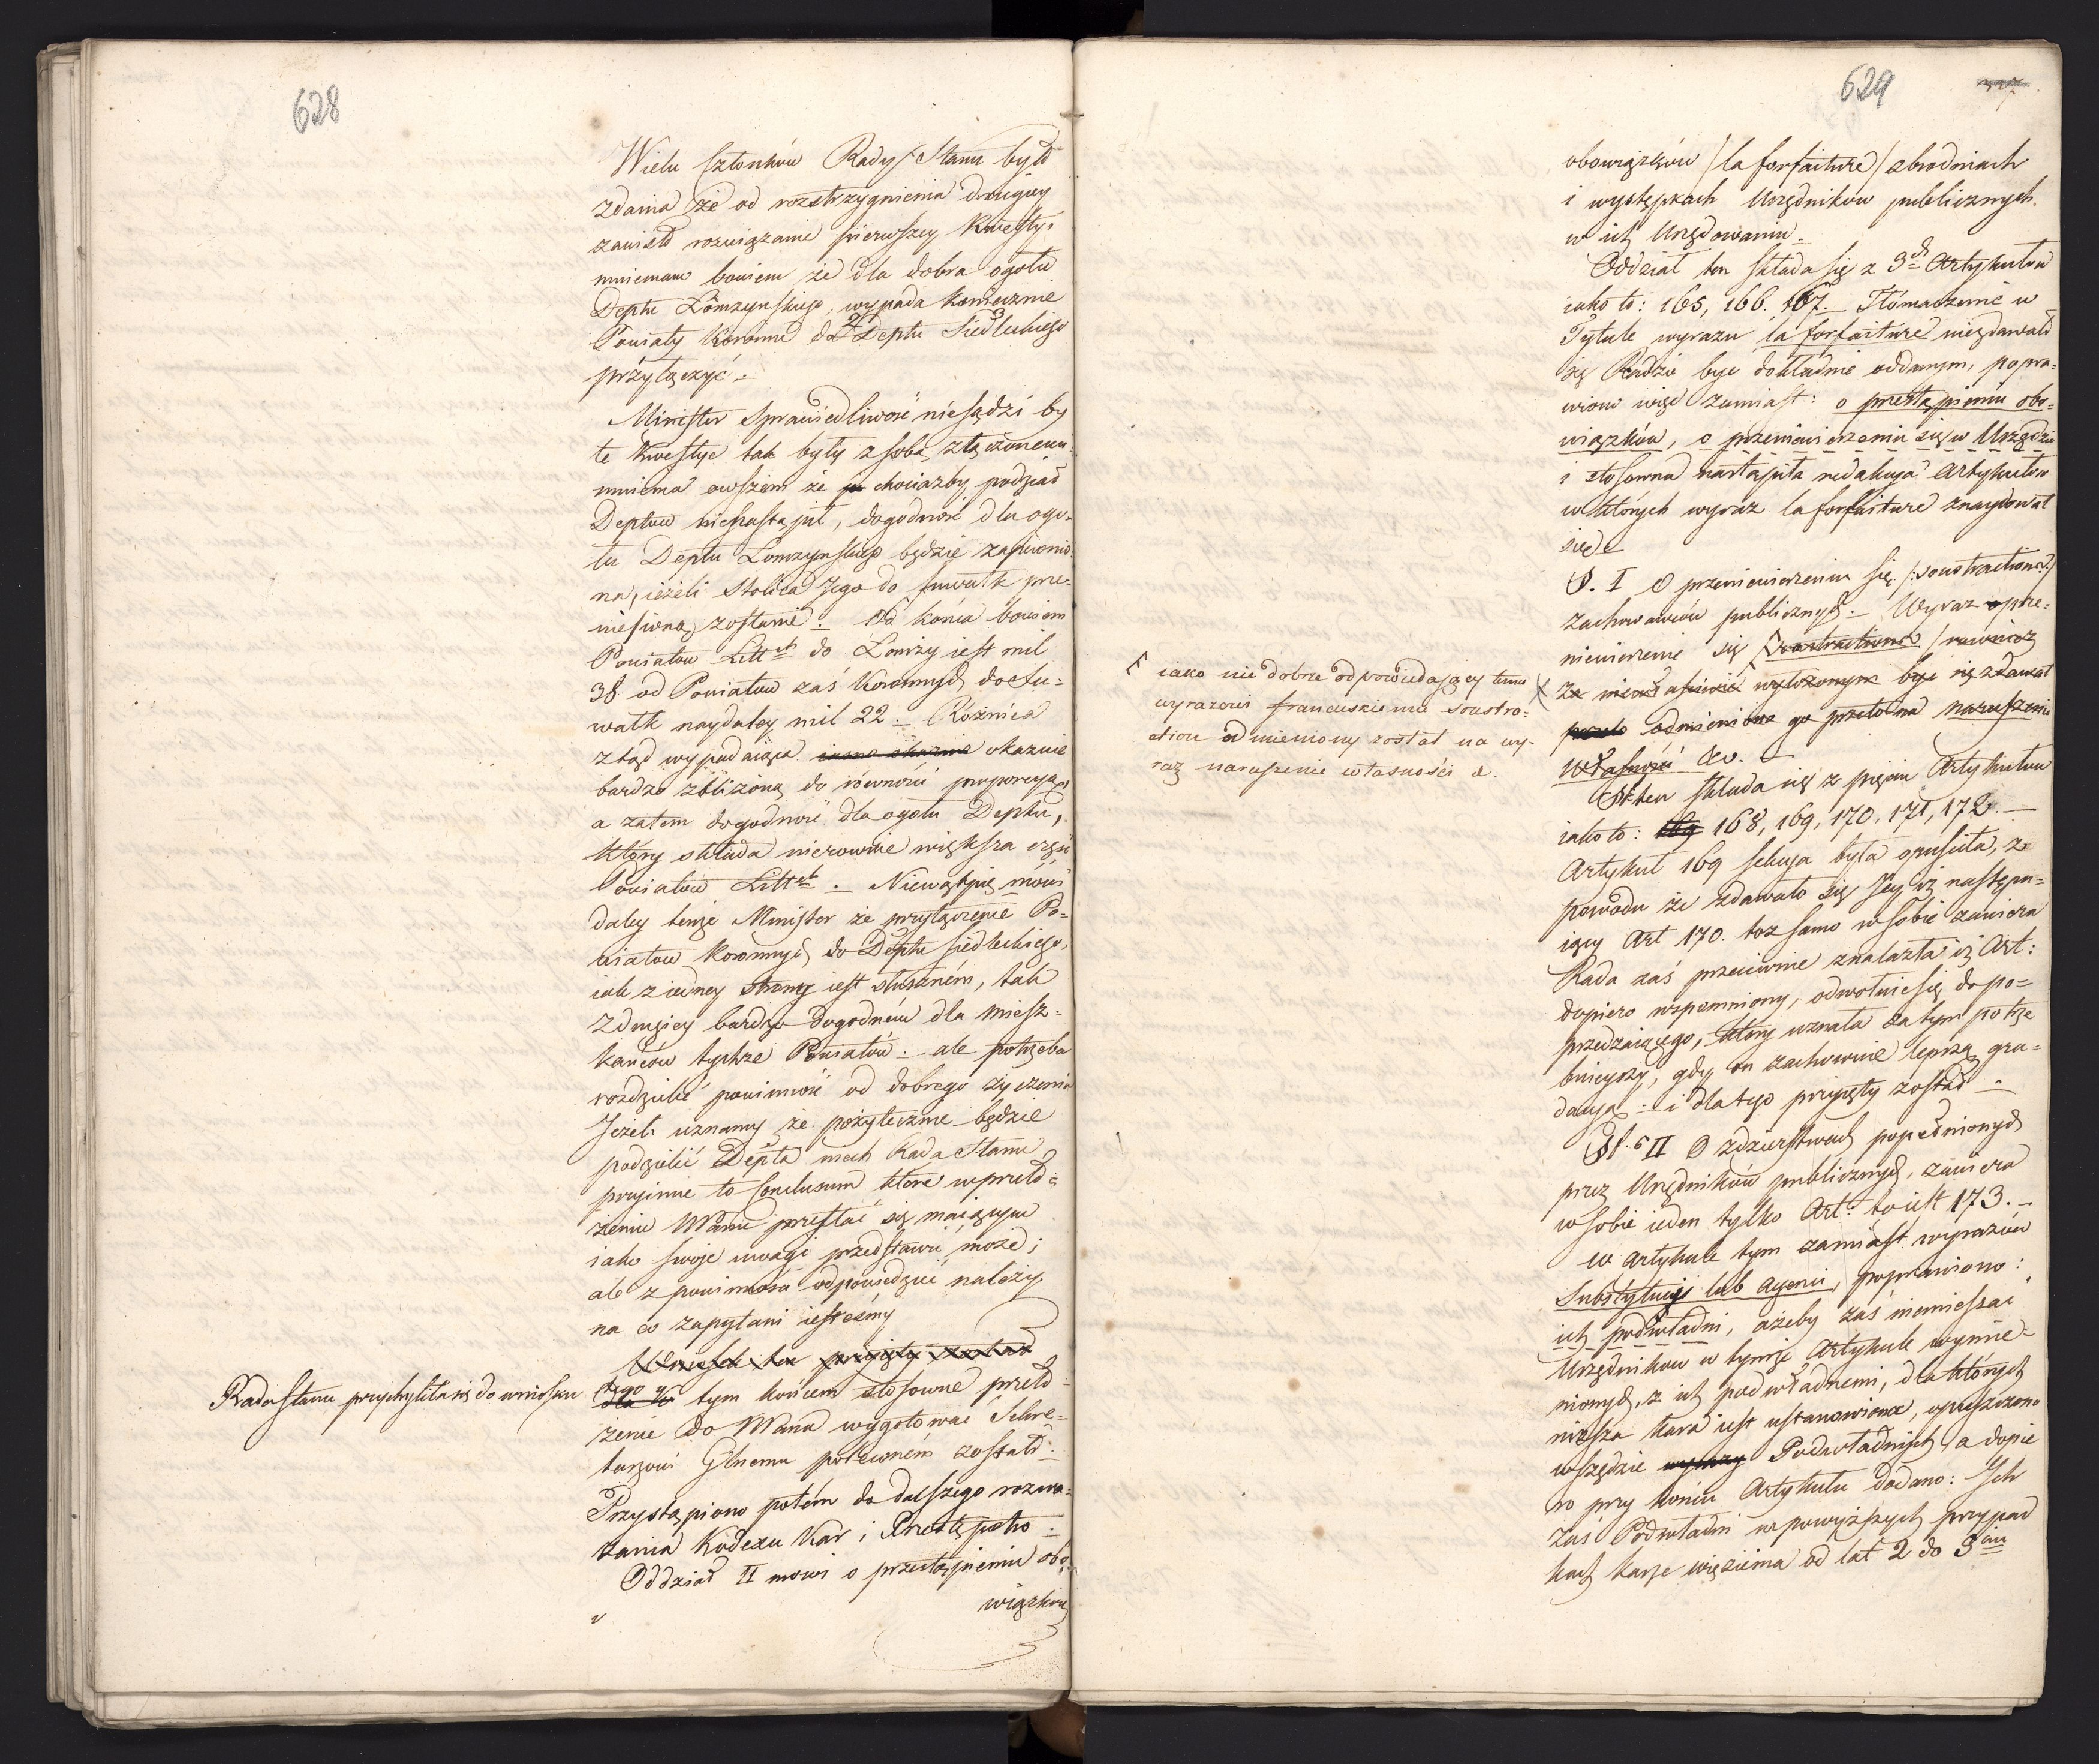 628
Wielu Członków Rady Stanu było
zdania że od rozstrzygnienia drugiey
zawisło rozwiązanie pierwszey kwestyi
mniemano bowiem że dla dobra ogołu
Deptu Łomżynskiego, wypada koniecznie
Powiaty Koronne do Deptu Siedleckiego
przyłączyć.
Minister Sprawiedliwości niesądzi by
te kwestye tak były z sobą złączonemi
mniema owszem że chociażby podział
Deptow nienastąpił, dogodność dla ogo-
łu Deptu Łomzynskiego będzie zapewnio
na, ieżeli stolica Jego do Suwałk prze-
niesiona, zostanie. Od końca bowiem
Powiatow Litt.ch do Łomży iest mil
38. od Powiatow zaś Koronnych do Su-
wałk naydaley mil 22. Różnica
ztąd wypadaiąca okazuie
bardzo zbliżoną do równości proporcyą,
a zatem dogodność dla ogołu Deptu,
ktory składa nierownie większa część
Powiatow Litt.ch. Niewątpię mówi
daley tenże Minister że przyłączenie Po-
wiatow Koronnych do Deptu Siedleckiego,
iak z iedney strony iest słuszném, tak
z drugiey bardzo dogodném dla miesz-
kańców tychże Powiatów. ale potrzeba
rozdzielić powinność od dobrego życzenia
Jeżeli uznamy że pożytecznie będzie
podzielić Depta niech Rada Stanu
przyimie to Conclusum które w przeło-
żeniu WMani przesłać się maiącym
iako swoje uwagi przedstawić może;
ale z powinności odpowiedzieć należy
na co zapytani iesteśmy
Wniosek ten przyięty został
Rada Stanu przychyliła się do wniosku
tego y w tym końcem stosowne przeło-
żenie do WMana wygotować Sekre-
tarzowi Glnemu poleconém zostało.
Przystąpiono potém do dalszego rozwa-
żania Kodexu Kar i Przestępstw.
Oddział II mowi o przestąpieniu obo-
wiązków
629
obowiązków /la forfaiture/ zbrodniach
i występkach Urzędników publicznych.
w ich Urzędowaniu.
Oddział ten składa się z 3ch Artykułów
iako to: 165, 166. 167. Tłómaczenie w
Tytule wyrazu la forfaiture niezdawało
się Radzie bydź dokładnie oddanym, popra-
wiono więc zamiast: o przestąpieniu obo-
wiązków, o przeniewierzeniu się w Urzędzie
i stosowna nastąpiła redakcya Artykułow
w których wyraz la forfaiture znaydował
się.
§. I O przeniewierzeniu się /:soustractions:/
zachowawców publicznych. Wyraz prze-
niewierzenie się
iako nie dobrze odpowiedaiący temu
wyrazowi francuskiemu soustra-
ction odmieniony został na wy-
raz naruszenie własności &.
odmieniono go przeto na naruszenie
własności &c.
§ ten składa się z pięciu Artykułow
iako to: 168, 169, 170, 171, 172.
Artykuł 169 sekcya była opuściła, z
powodu że zdawało się Jey iż następu-
iący Art 170. toż samo w sobie zawiera
Rada zaś przeciwnie znalazła iż Art:
dopiero wspomniony, odwołuie się do po-
przedzaiącego, który uznała za tym potrze
bnieyszy, gdy on zachowuie lepszą gra-
dacyą. i dlatego przyięty został.
§. II O zdzierstwach popełnionych
przez Urzędników publicznych, zawiera
w sobie ieden tylko Art. to iest 173.
w artykule tym zamiast wyrazów
Substytuci lub Agenci, poprawiono:
ich podwładni, ażeby zaś niemieszać
Urzędników w tymże Artykule wymie-
nionych, z ich podwładnemi, dla których
niższa kara iest ustanowiona, opuszczono
wszędzie Podwładnych, a dopie
ro przy końcu Artykułu dodano: Ich
zaś Podwładni w powyższych przypad
kach karze więzienia od lat 2 do 5ciu